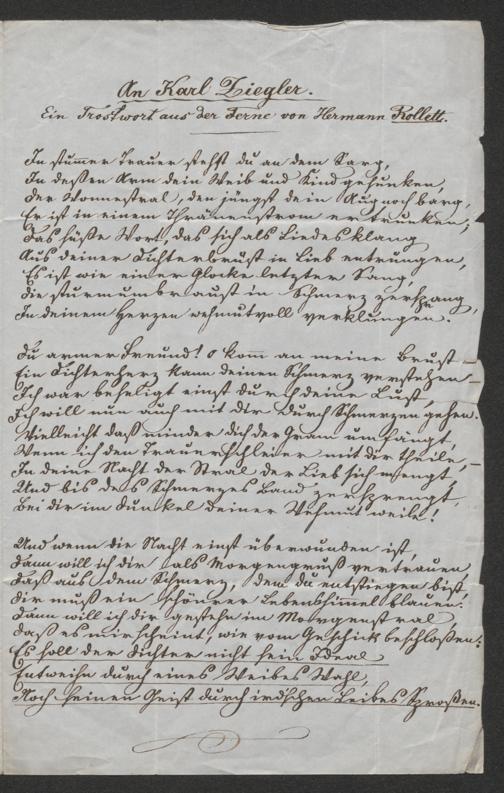 An Karl Ziegler.
Ein Trostwort aus der Ferne von Hermann Rollett.
In stummer Trauer stehst du an dem Sarg,
In dessen Arm dein Weib und Kind gesunken,
Der Wonnestral, den jüngst dein Aug noch barg,
Er ist in einem Thränenstrom ertrunken;
Das süße Wort, das sich als Liedesklang
Aus deiner Dichterbrust in Lieb entrungen,
Es ist wie einer Glocke letzter Sang,
Die sturmumbraust in Schmerz zersprang,
In deinem Herzen wehmutvoll verklungen.
Du armer Freund! o kom̄ an meine Brust –
Ein Dichterherz kann deinen Schmerz verstehen –
Ich war beseligt einst durch deine Lust,
Ich will nun auch mit dir durch Schmerzen gehen.
Vielleicht daß minder dich der Gram umfängt,
Wenn ich den Trauerschleier mit dir theile, –
In deine Nacht der Stral der Lieb sich mengt,
Und bis des Schmerzes Band zersprengt,
Bei dir im Dunkel deiner Wehmut weile!
Und wenn die Nacht einst überwunden ist,
Dann will ich dir als Morgengruß vertrauen,
Daß aus dem Schmerz, dem du entstiegen bist,
Dir muß ein schönrer Lebenshimmel blauen.
Dann will ich dir gestehn im Morgenstral,
Daß es mir scheint, wie vom Geschick beschloßen:
Es soll der Dichter nicht sein Ideal
Entweihn durch eines Weibes Wahl,
Noch seinen Geist durch ird'schen Leibes Sproßen.